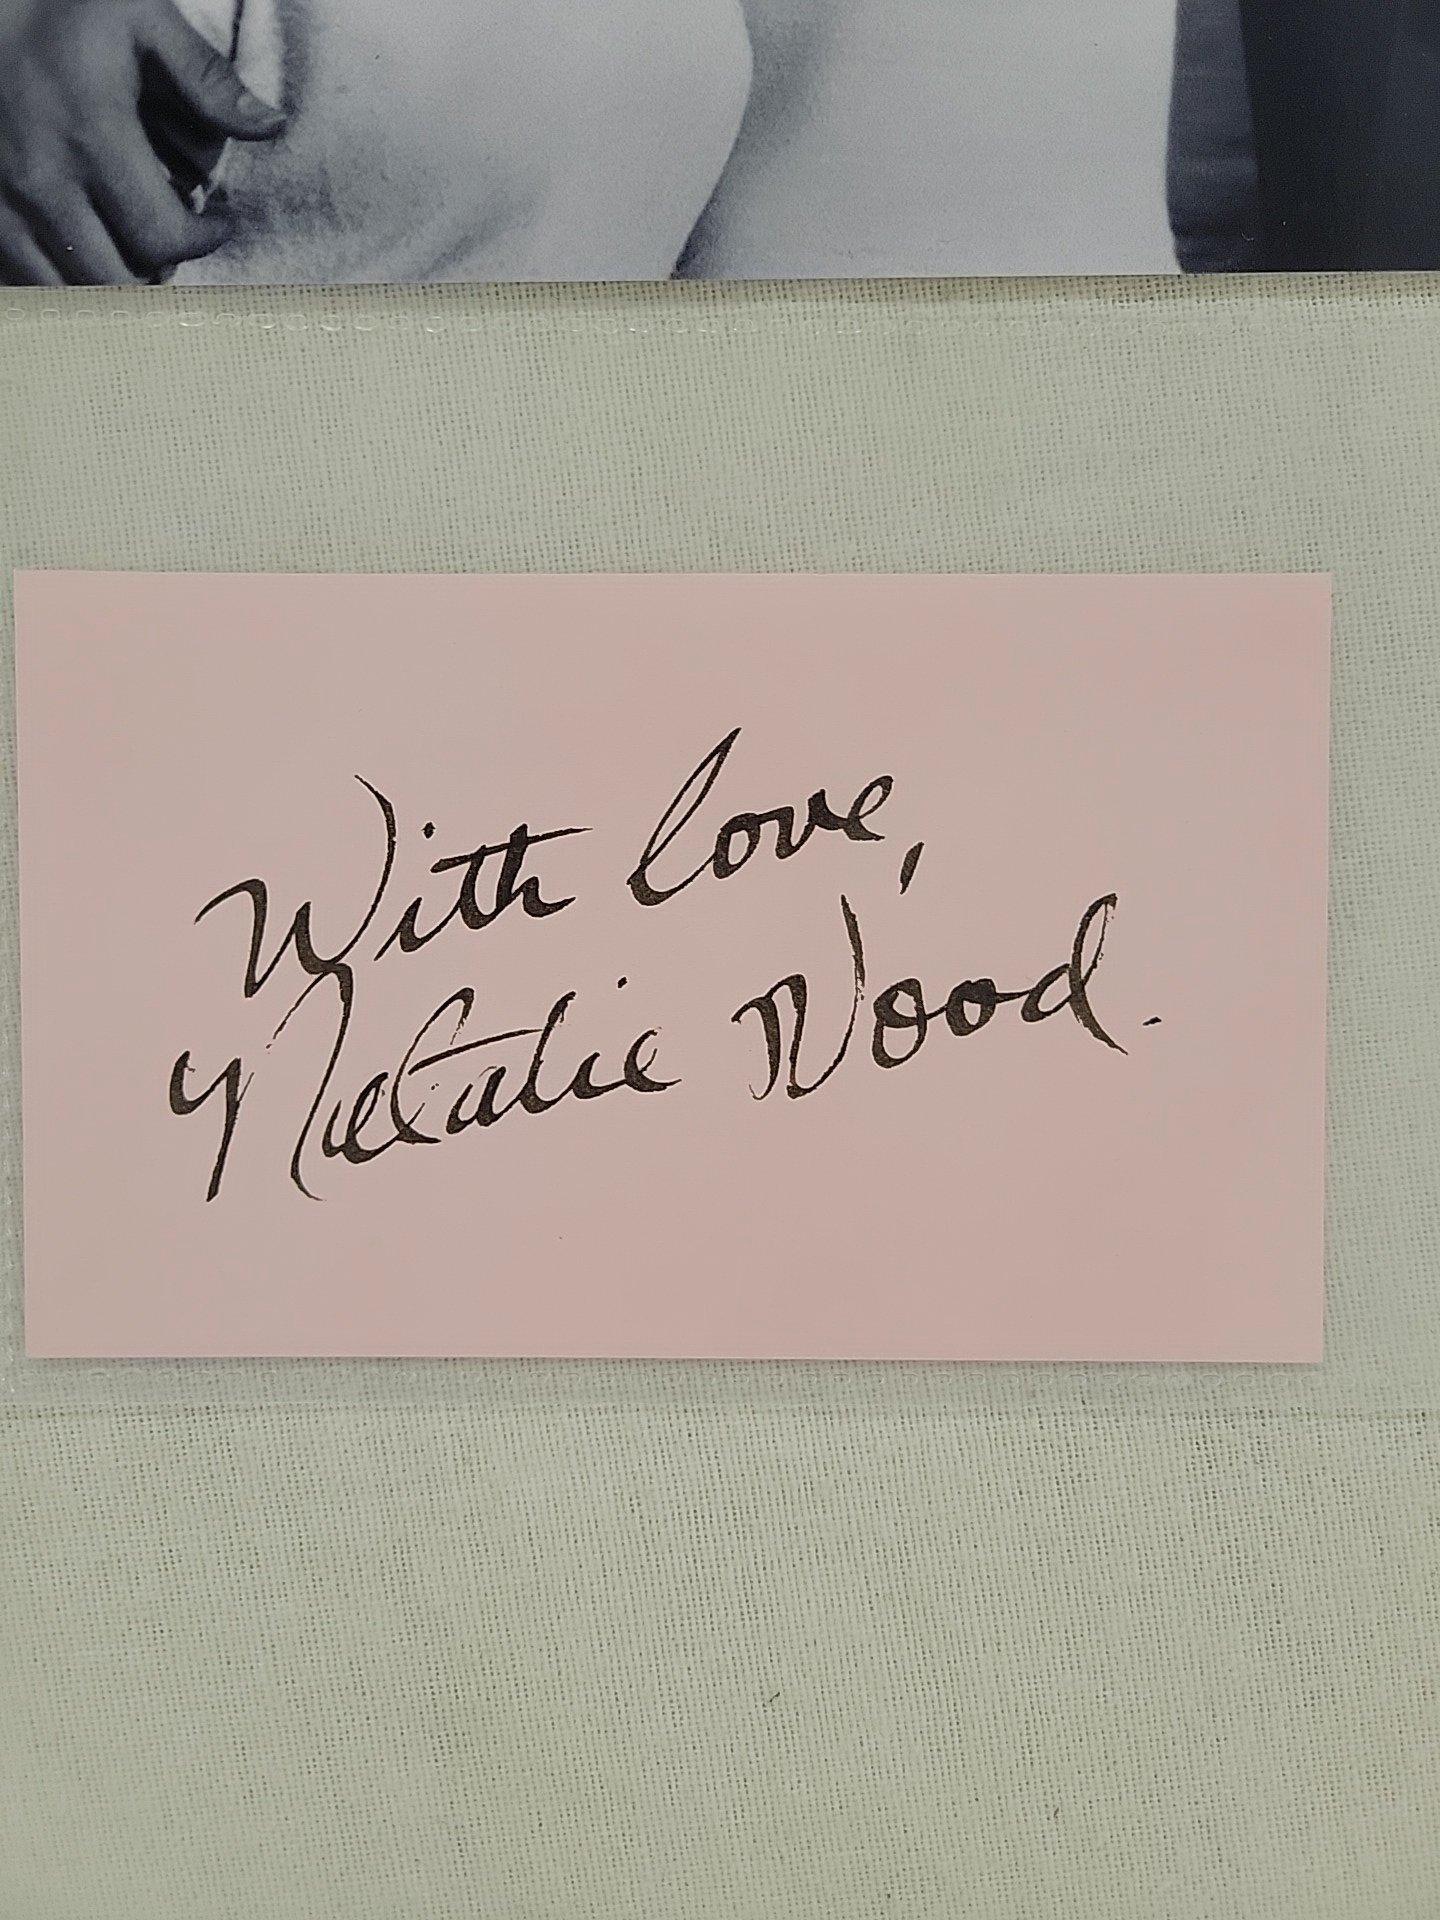 With love,
Natalie Wood.